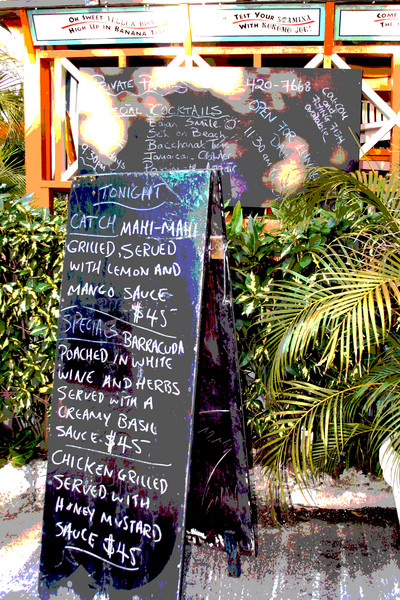 OH SWEET
HIGH UP IN BANANA
TEST YOUR STAMINA
WITH KOKOMO JOE
COME
PRIVATE
420-7668
COCKTAILS
Bajan Smile
Sex on Beach
OPEN FOR
11:30 am
Jamaican
TONIGHT
CATCH MAHI-MAHI
GRILLED, SERVED
WITH LEMON AND
MANGO SAUCE
$45
SPECIALS BARRACUDA
POACHED IN WHITE
WINE AND HERBS
SERVED WITH A
CREAMY BASIL
SAUCE $45
CHICKEN GRILLED
SERVED WITH
HONEY MUSTARD
SAUCE $45